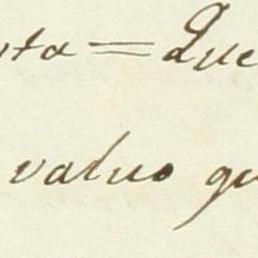 sta = Que
value qu